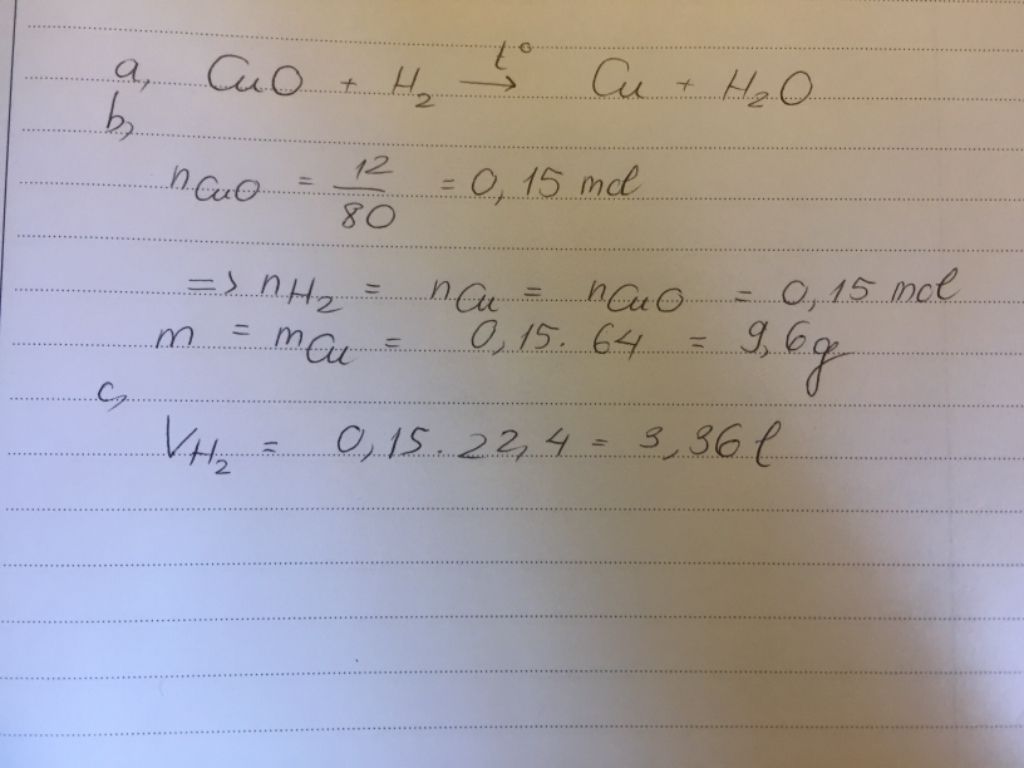 a, CuO + H₂ —t°→ Cu + H₂O
b,
nCuO = 12/80 = 0,15 mol
=> nH₂ = nCu = nCuO = 0,15 mol
m = mCu = 0,15. 64 = 9,6g
c,
VH₂ = 0,15. 22,4 = 3,36 l